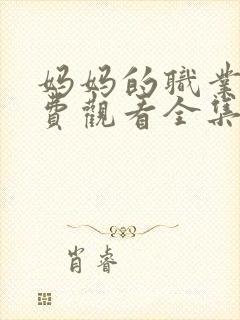 妈妈的職業
費觀看全集
肖睿